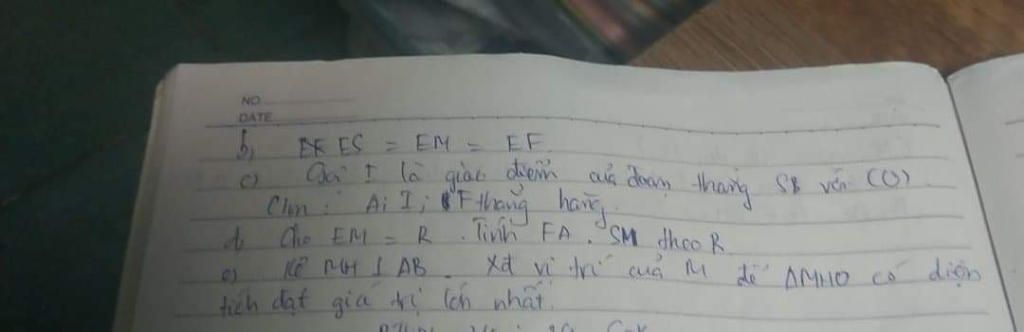 NO
DATE
b, ES = EM = EF
c) Gọi I là giao điểm của đoạn thẳng SB với (O)
Cm: A; I; F thẳng hàng.
d, Cho EM = R. Tính FA. SM theo R
e) Kẻ MH ⊥ AB. Xđ vị trí của M để ΔMHO có diện
tích đạt giá trị lớn nhất.